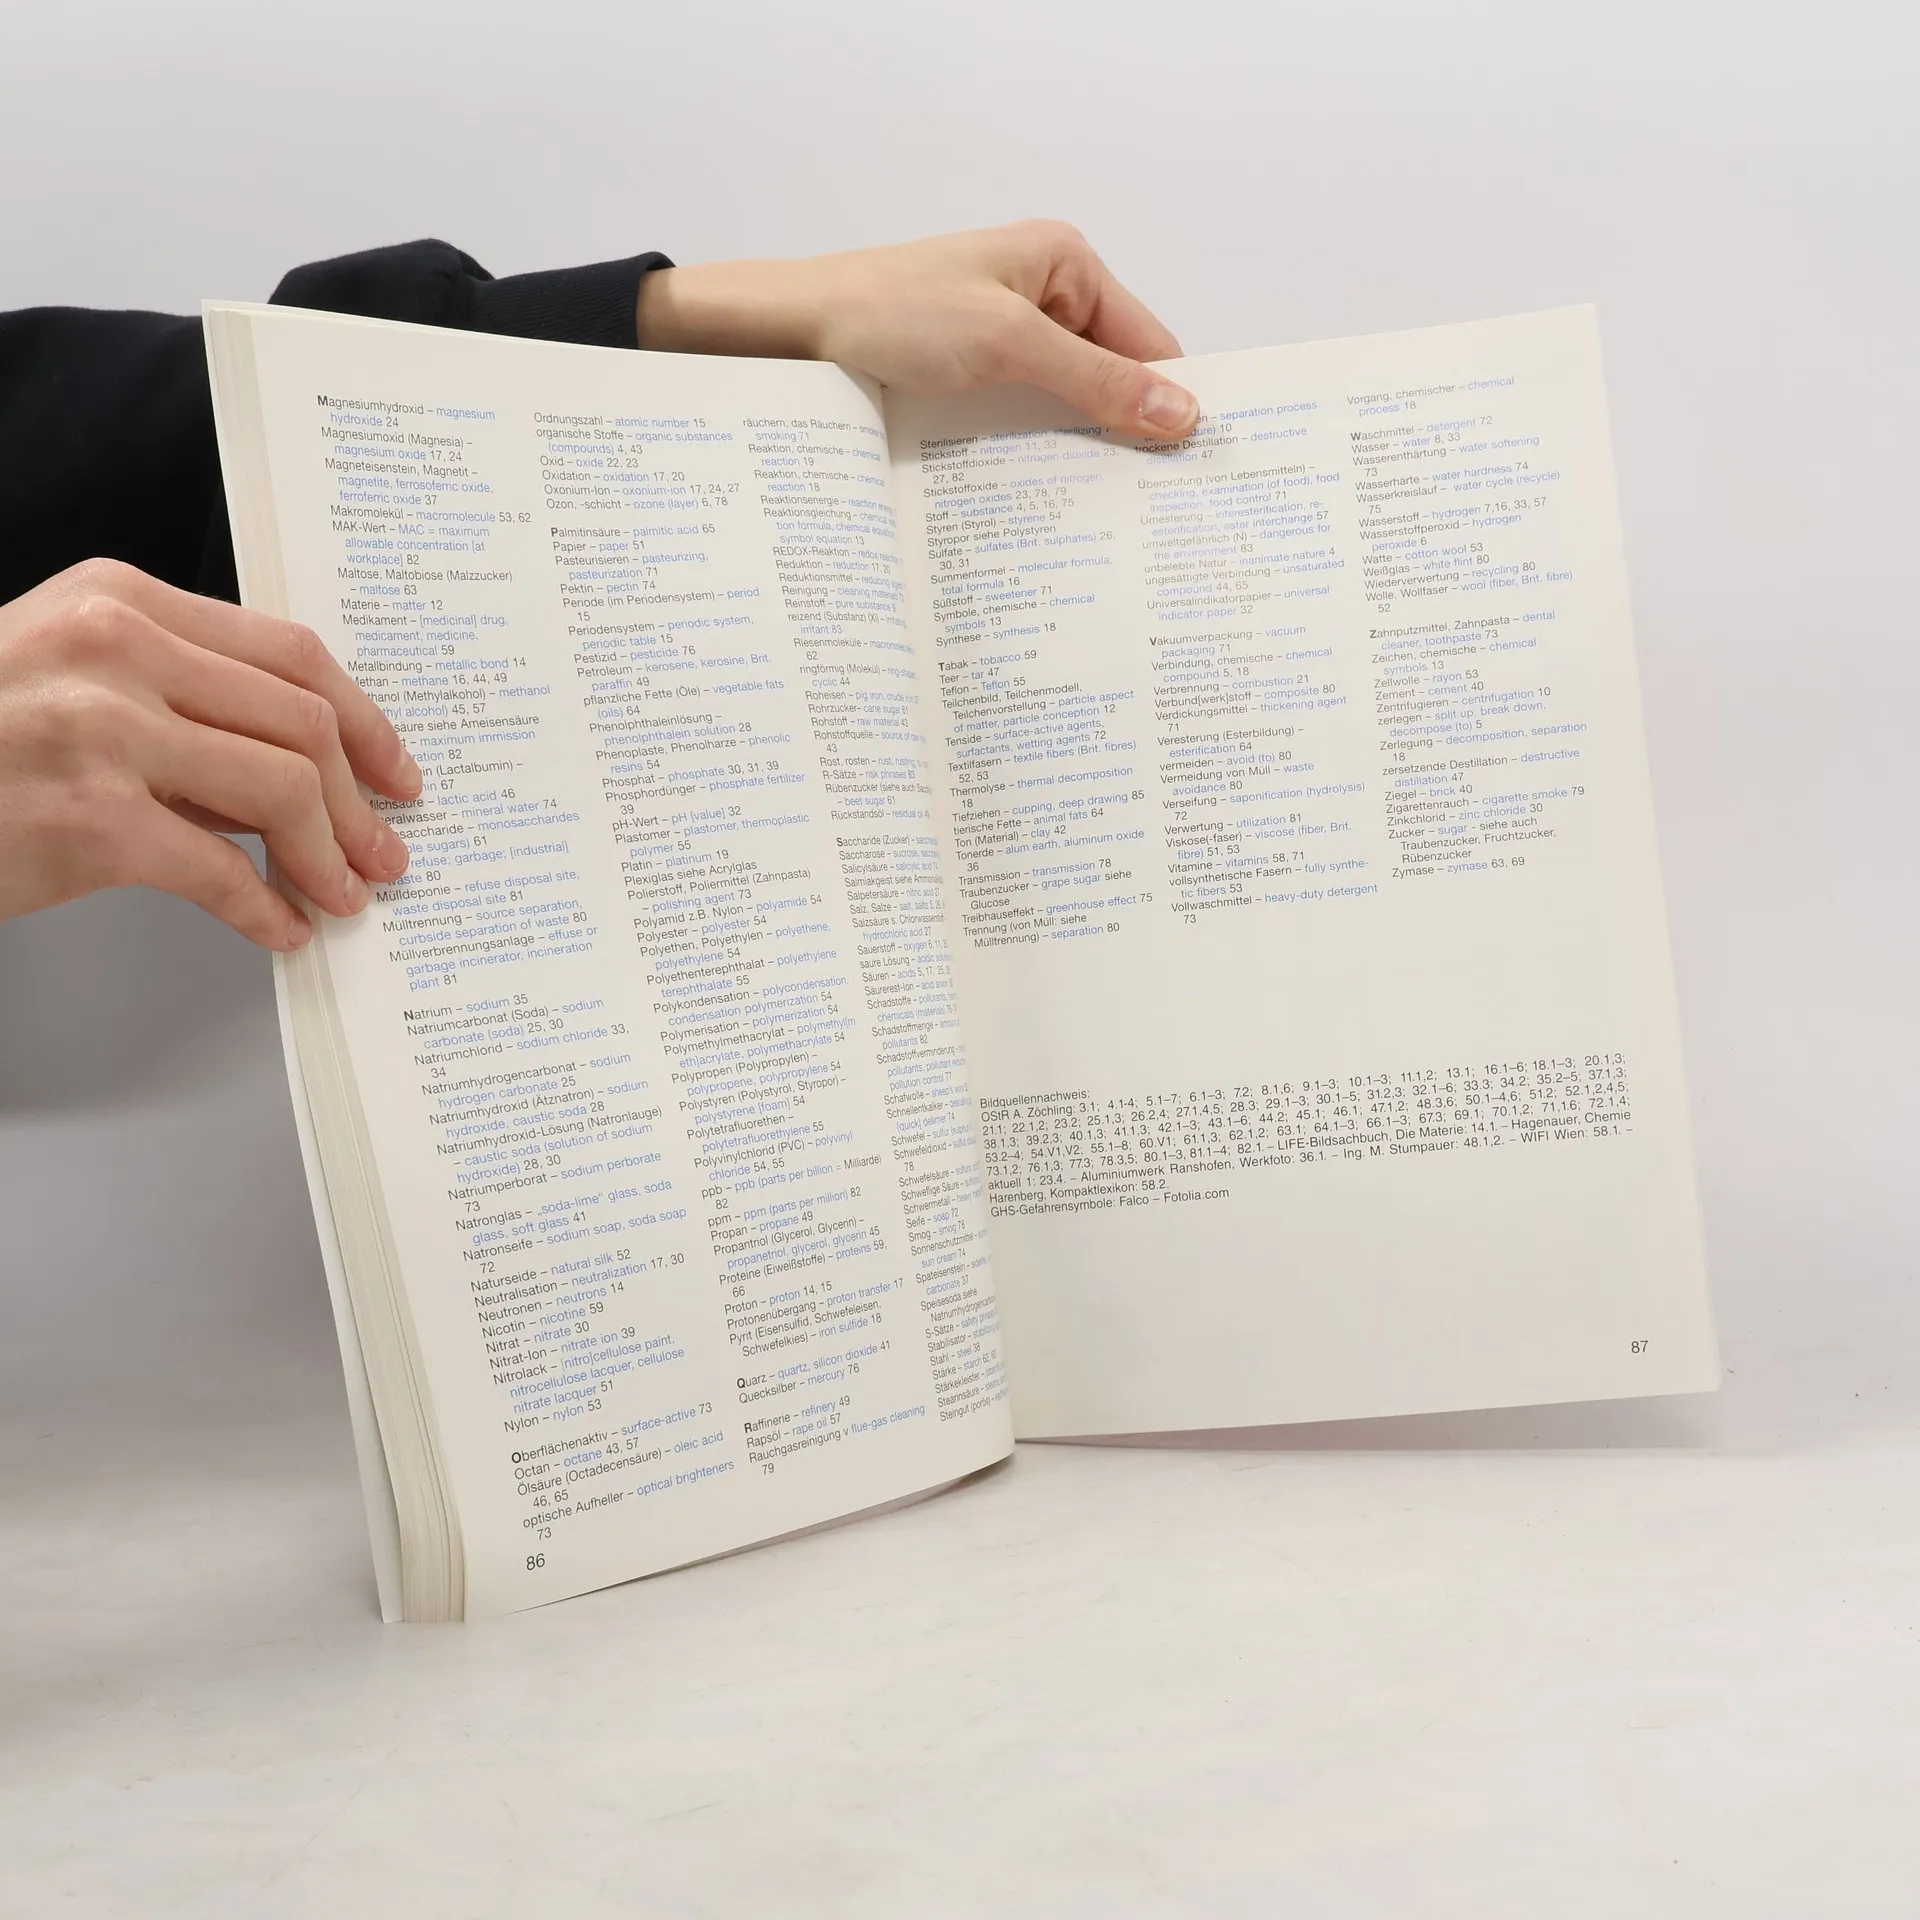 Magnesiumhydroxid – magnesium
hydroxide 24
Magnesiumoxid (Magnesia) –
magnesium oxide 17, 24
Magneteisenstein, Magnetit –
magnetite, ferrosoferric oxide,
ferroferric oxide 37
Makromolekül – macromolecule 53, 62
MAK-Wert – MAC = maximum
allowable concentration [at
workplace] 82
Maltose, Maltobiose (Malzzucker)
– maltose 63
Materie – matter 12
Medikament – [medicinal] drug,
medicament, medicine,
pharmaceutical 59
Metallbindung – metallic bond 14
Methan – methane 16, 44, 49
(Methylalkohol) – methanol
alcohol) 45, 57
siehe Ameisensäure
– maximum immission
82
(Lactalbumin) –
67
Milchsäure – lactic acid 46
– mineral water 74
– monosaccharides
sugars) 61
refuse; garbage; [industrial]
waste 80
Mülldeponie – refuse disposal site,
waste disposal site 81
Mülltrennung – source separation,
curbside separation of waste 80
Müllverbrennungsanlage – effuse or
garbage incinerator, incineration
plant 81
Natrium – sodium 35
Natriumcarbonat (Soda) – sodium
carbonate (soda) 25, 30
Natriumchlorid – sodium chloride 33,
34
Natriumhydrogencarbonat – sodium
hydrogen carbonate 25
Natriumhydroxid (Ätznatron) – sodium
hydroxide, caustic soda 28
Natriumhydroxid-Lösung (Natronlauge)
– caustic soda (solution of sodium
hydroxide) 28, 30
Natriumperborat – sodium perborate
73
Natronglas – „soda-lime“ glass, soda
glass, soft glass 41
Natronseife – sodium soap, soda soap
72
Naturseide – natural silk 52
Neutralisation – neutralization 17, 30
Neutronen – neutrons 14
Nicotin – nicotine 59
Nitrat – nitrate 30
Nitrat-Ion – nitrate ion 39
Nitrolack – [nitro]cellulose paint,
nitrocellulose lacquer, cellulose
nitrate lacquer 51
Nylon – nylon 53
Oberflächenaktiv – surface-active 73
Octan – octane 43, 57
Ölsäure (Octadecensäure) – oleic acid
46, 65
optische Aufheller – optical brighteners
73
86
Ordnungszahl – atomic number 15
organische Stoffe – organic substances
(compounds) 4, 43
Oxid – oxide 22, 23
Oxidation – oxidation 17, 20
Oxonium-Ion – oxonium-ion 17, 24, 27
Ozon, -schicht – ozone (layer) 6, 78
Palmitinsäure – palmitic acid 65
Papier – paper 51
Pasteurisieren – pasteurizing,
pasteurization 71
Pektin – pectin 74
Periode (im Periodensystem) – period
15
Periodensystem – periodic system,
periodic table 15
Pestizid – pesticide 76
Petroleum – kerosene, kerosine, Brit.
paraffin 49
pflanzliche Fette (Öle) – vegetable fats
(oils) 64
Phenolphthaleinlösung –
phenolphthalein solution 28
Phenoplaste, Phenolharze – phenolic
resins 54
Phosphat – phosphate 30, 31, 39
Phosphordünger – phosphate fertilizer
39
pH-Wert – pH [value] 32
Plastomer – plastomer, thermoplastic
polymer 55
Platin – platinum 19
Plexiglas siehe Acrylglas
Polierstoff, Poliermittel (Zahnpasta)
– polishing agent 73
Polyamid z.B. Nylon – polyamide 54
Polyester – polyester 54
Polyethen, Polyethylen – polyethene,
polyethylene 54
Polyethenterephthalat – polyethylene
terephthalate 55
Polykondensation – polycondensation,
condensation polymerization 54
Polymerisation – polymerization 54
Polymethylmethacrylat – polymethyl[m
eth]acrylate, polymethacrylate 54
Polypropen (Polypropylen) –
polypropene, polypropylene 54
Polystyren (Polystyrol, Styropor) –
polystyrene [foam] 54
Polytetrafluorethen –
polytetrafluorethylene 55
Polyvinylchlorid (PVC) – polyvinyl
chloride 54, 55
ppb – ppb (parts per billion = Milliarde)
82
ppm – ppm (parts per million) 82
Propan – propane 49
Propantriol (Glycerol, Glycerin) –
propanetriol, glycerol, glycerin 45
Proteine (Eiweißstoffe) – proteins 59,
66
Proton – proton 14, 15
Protonenübergang – proton transfer 17
Pyrit (Eisensulfid, Schwefeleisen,
Schwefelkies) – iron sulfide 18
Quarz – quartz, silicon dioxide 41
Quecksilber – mercury 76
Raffinerie – refinery 49
Rapsöl – rape oil 57
Rauchgasreinigung v flue-gas cleaning
79
räuchern, das Räuchern –
smoking 71
Reaktion, chemische – chemical
reaction 19
Reaktion, chemische – chemical
reaction 18
Reaktionsenergie – reaction
Reaktionsgleichung – chemical
tion formula, chemical equation
symbol equation 13
REDOX-Reaktion – redox
Reduktion – reduction 17, 20
Reduktionsmittel – reducing
Reinigung – cleaning
Reinstoff – pure substance
reizend (Substanz) (Xi) –
irritant 83
Riesenmoleküle –
62
ringförmig (Molekül) –
cyclic 44
Roheisen – pig iron,
Rohrzucker – cane sugar 61
Rohstoff – raw material 43
Rohstoffquelle – source of
43
Rost, rosten – rust,
R-Sätze – risk phrases 83
Rübenzucker (siehe auch
– beet sugar 61
Rückstandsöl – residual oil
Saccharide (Zucker) –
Saccharose – sucrose,
Salicylsäure – salicylic acid
Salmiakgeist siehe
Salpetersäure – nitric acid
Salz, Salze – salt, salts
Salzsäure s.
hydrochloric acid 27
Sauerstoff – oxygen 6, 11,
saure Lösung – acidic
Säuren – acids 5, 17,
Säurerest-Ion – acid
Schadstoffe – pollutants,
chemicals (materials)
Schadstoffmenge –
pollutants 82
Schadstoffverminderung –
pollutants, pollutant
pollution control 77
Schafwolle – sheep's
Schnellentkalker –
[quick] delimer 74
Schwefel – sulfur
Schwefeldioxid –
78
Schwefelsäure –
Schweflige Säure –
Schwermetall – heavy
Seife – soap 72
Smog – smog 78
Sonnenschutzmittel –
sun cream 74
Spateisenstein –
carbonate 37
Speisesoda siehe
S-Sätze – safety
Stabilisator –
Stahl – steel 38
Stärke – starch 62,
Stärkekleister –
Stearinsäure –
Steingut (porös) –
Sterilisieren – sterilization, sterilizing
Stickstoff – nitrogen 11, 33
Stickstoffdioxide – nitrogen dioxide 23,
27, 82
Stickstoffoxide – oxides of nitrogen,
nitrogen oxides 23, 78, 79
Stoff – substance 4, 5, 16, 75
Styren (Styrol) – styrene 54
Styropor siehe Polystyren
Sulfate – sulfates (Brit. sulphates) 26,
30, 31
Summenformel – molecular formula,
total formula 16
Süßstoff – sweetener 71
Symbole, chemische – chemical
symbols 13
Synthese – synthesis 18
Tabak – tobacco 59
Teer – tar 47
Teflon – Teflon 55
Teilchenbild, Teilchenmodell,
Teilchenvorstellung – particle aspect
of matter, particle conception 12
Tenside – surface-active agents,
surfactants, wetting agents 72
Textilfasern – textile fibers (Brit. fibres)
52, 53
Thermolyse – thermal decomposition
18
Tiefziehen – cupping, deep drawing 85
tierische Fette – animal fats 64
Ton (Material) – clay 42
Tonerde – alum earth, aluminum oxide
36
Transmission – transmission 78
Traubenzucker – grape sugar siehe
Glucose
Treibhauseffekt – greenhouse effect 75
Trennung (von Müll: siehe
Mülltrennung) – separation 80
– separation process
10
trockene Destillation – destructive
distillation 47
Überprüfung (von Lebensmitteln) –
checking, examination (of food), food
inspection, food control 71
Umesterung – interesterification, re-
esterification, ester interchange 57
umweltgefährlich (N) – dangerous for
the environment 83
unbelebte Natur – inanimate nature 4
ungesättigte Verbindung – unsaturated
compound 44, 65
Universalindikatorpapier – universal
indicator paper 32
Vakuumverpackung – vacuum
packaging 71
Verbindung, chemische – chemical
compound 5, 18
Verbrennung – combustion 21
Verbund[werk]stoff – composite 80
Verdickungsmittel – thickening agent
71
Veresterung (Esterbildung) –
esterification 64
vermeiden – avoid (to) 80
Vermeidung von Müll – waste
avoidance 80
Verseifung – saponification (hydrolysis)
72
Verwertung – utilization 81
Viskose(-faser) – viscose (fiber, Brit.
fibre) 51, 53
Vitamine – vitamins 58, 71
vollsynthetische Fasern – fully synthe-
tic fibers 53
Vollwaschmittel – heavy-duty detergent
73
Vorgang, chemischer – chemical
process 18
Waschmittel – detergent 72
Wasser – water 8, 33
Wasserenthärtung – water softening
73
Wasserhärte – water hardness 74
Wasserkreislauf – water cycle (recycle)
75
Wasserstoff – hydrogen 7,16, 33, 57
Wasserstoffperoxid – hydrogen
peroxide 6
Watte – cotton wool 53
Weißglas – white flint 80
Wiederverwertung – recycling 80
Wolle, Wollfaser – wool (fiber, Brit. fibre)
52
Zahnputzmittel, Zahnpasta – dental
cleaner, toothpaste 73
Zeichen, chemische – chemical
symbols 13
Zellwolle – rayon 53
Zement – cement 40
Zentrifugieren – centrifugation 10
zerlegen – split up, break down,
decompose (to) 5
Zerlegung – decomposition, separation
18
zersetzende Destillation – destructive
distillation 47
Ziegel – brick 40
Zigarettenrauch – cigarette smoke 79
Zinkchlorid – zinc chloride 30
Zucker – sugar - siehe auch
Traubenzucker, Fruchtzucker,
Rübenzucker
Zymase – zymase 63, 69
Bildquellennachweis:
OStR A. Zöchling: 3.1; 4.1-4; 5.1–7; 6.1–3; 7.2; 8.1,6; 9.1–3; 10.1–3; 11.1,2; 13.1; 16.1–6; 18.1–3; 20.1,3;
21.1; 22.1,2; 23.2; 25.1,3; 26.2,4; 27.1,4,5; 28.3; 29.1–3; 30.1–5; 31.2,3; 32.1–6; 33.3; 34.2; 35.2–5; 37.1,3;
38.1,3; 39.2,3; 40.1,3; 41.1,3; 42.1–3; 43.1–6; 44.2; 45.1; 46.1; 47.1,2; 48.3,6; 50.1–4,6; 51.2; 52.1,2,4,5;
53.2–4; 54.V1,V2; 55.1–8; 60.V1; 61.1,3; 62.1,2; 63.1; 64.1–3; 66.1–3; 67.3; 69.1; 70.1,2; 71.1,6; 72.1,4;
73.1,2; 76.1,3; 77.3; 78.3,5; 80.1–3, 81.1–4; 82.1. – LIFE-Bildsachbuch, Die Materie: 14.1. – Hagenauer, Chemie
aktuell 1: 23.4. – Aluminiumwerk Ranshofen, Werkfoto: 36.1. – Ing. M. Stumpauer: 48.1,2. – WIFI Wien: 58.1. –
Harenberg, Kompaktlexikon: 58.2.
GHS-Gefahrensymbole: Falco – Fotolia.com
87